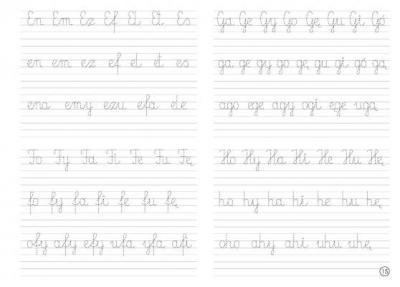 En Em Ez Ef El Et Es
en em ez ef el et es
ena emy ezu efa ele
Fo Fy Fa Fi Fe Fu Fę
fo fy fa fi fe fu fę
ofy afy efy ufa yfa afi
Ga Ge Gy Go Gę Gu Gi Gó
ga ge gy go gę gu gi gó gą
ago ege agy ogi ege ugą
Ho Hy Ha Hi He Hu Hę
ho hy ha hi he hu hę
oho ahy ahi uhu uhę
15